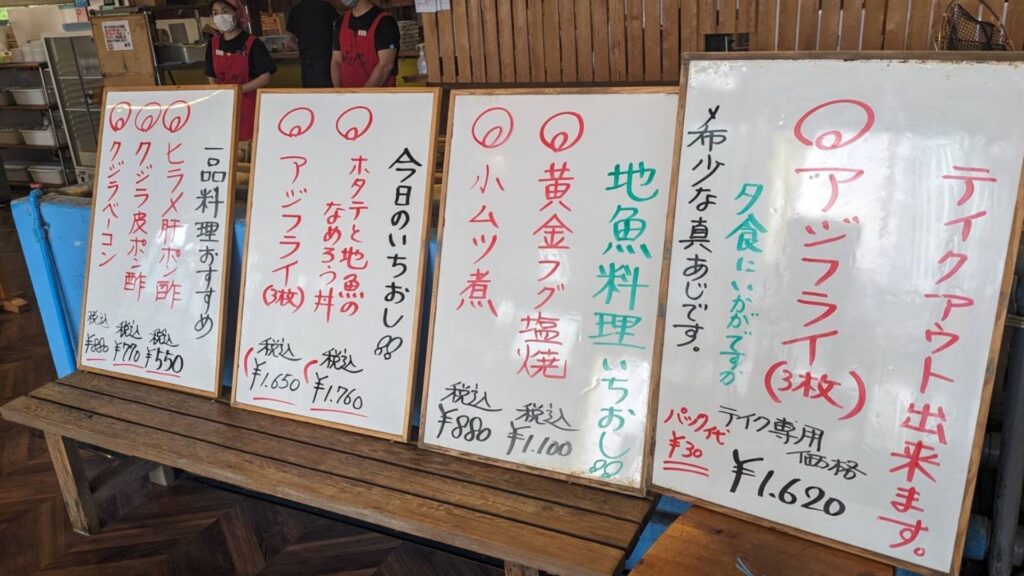 テイクアウト出来ます。
アジフライ(3枚)
夕食にいかがですか
希少な真あじです。
テイク専用
価格
¥1.620
パック代
¥30
地魚料理いちおし
黄金フグ塩焼
税込
¥1.100
小ムツ煮
税込
¥880
今日のいちおし
ホタテと地魚の
なめろう丼
税込
¥1.760
アジフライ(3枚)
税込
¥1.650
一品料理おすすめ
ヒラメ肝ポン酢
税込
¥550
クジラ皮ポン酢
税込
¥770
クジラベーコン
税込
¥880